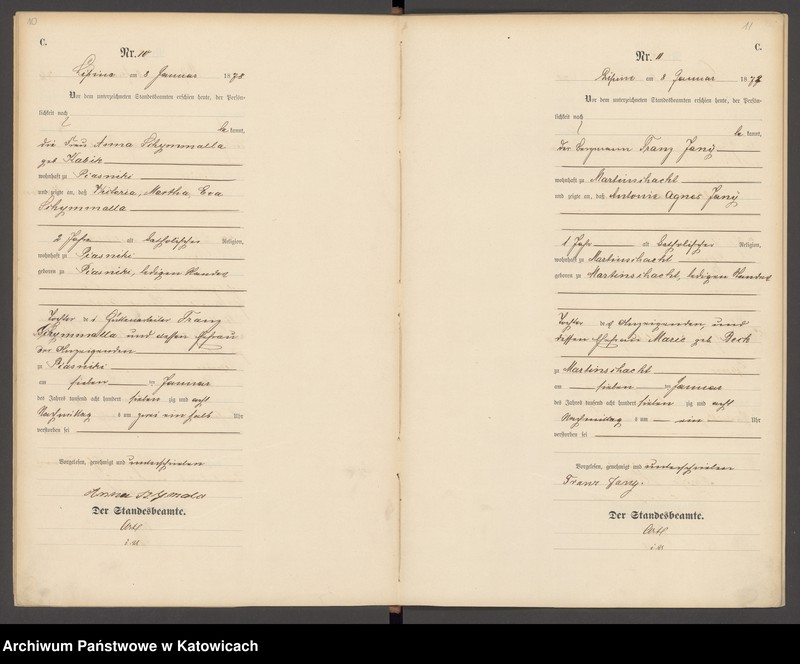 10
C.
Nr. 10
Lipine am 8 Januar 1878
Vor dem unterzeichneten Standesbeamten erschien heute, der Persön-
lichkeit nach
be kannt,
die Frau Anna Schymmalla
geb Kabik
wohnhaft zu Piasniki
und zeigte an, daß Victoria, Martha, Eva
Schymmalla
2 Jahr alt katholischer Religion,
wohnhaft zu Piasniki
geboren zu Piasniki, ledigen Standes
Tochter des Hüttenarbeiter Franz
Schymmalla und dessen Ehefrau
der Anzeigenden
zu Piasniki
am sieben ten Januar
des Jahres tausend acht hundert sieben zig und acht
Nachmittag s um zwei ein halb Uhr
verstorben sei
Vorgelesen, genehmigt und unterschrieben
Anna
Der Standesbeamte.
11
C.
Nr. 11
Lipine am 8 Januar 1878
Vor dem unterzeichneten Standesbeamten erschien heute, der Persön-
lichkeit nach
be kannt,
der Bergmann Franz Jany
wohnhaft zu Martinschacht
und zeigte an, daß Antonie Agnes Jany
1 Jahr alt katholischer Religion,
wohnhaft zu Martinschacht
geboren zu Martinschacht, ledigen Standes
Tochter des Anzeigenden, und
dessen Ehefrau Marie geb Beck
zu Martinschacht
am sieben ten Januar
des Jahres tausend acht hundert sieben zig und acht
Nachmittag s um ein Uhr
verstorben sei
Vorgelesen, genehmigt und unterschrieben
Franz Jany.
Der Standesbeamte.
Archiwum Państwowe w Katowicach